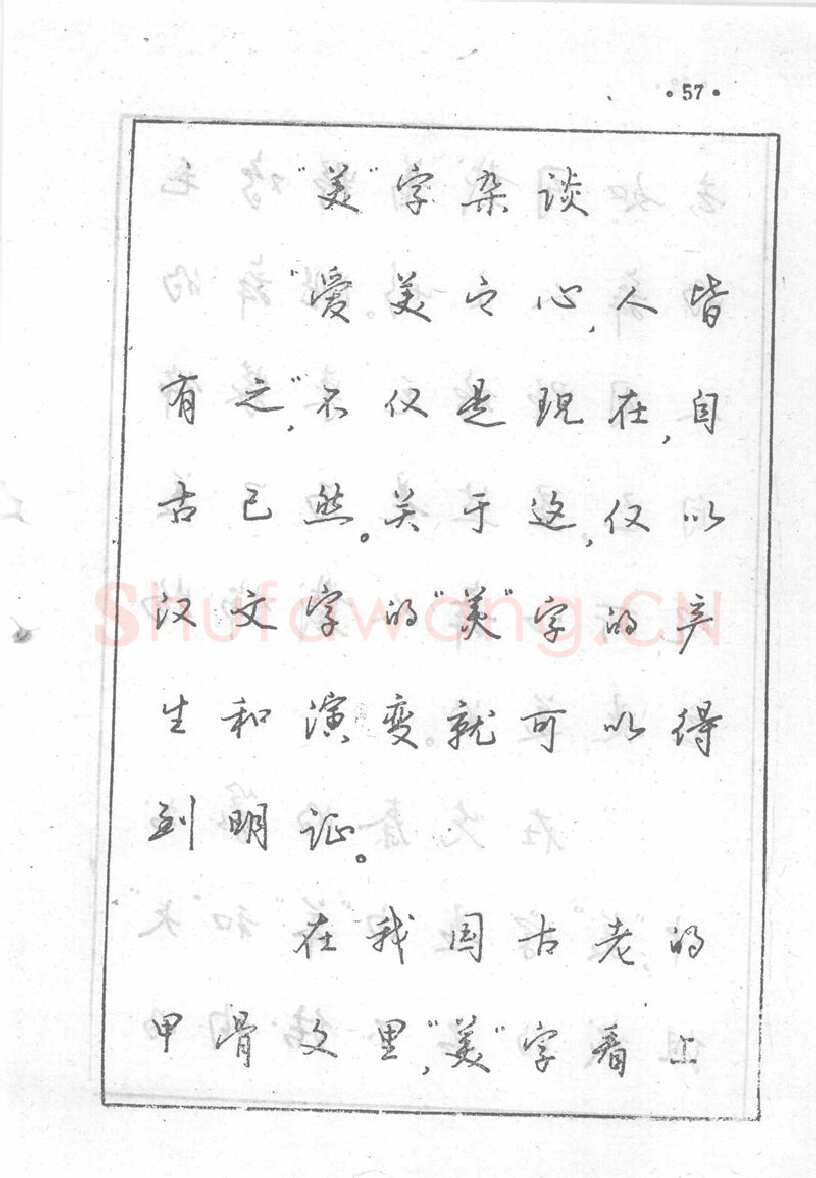 ·57·
"美"字杂谈
"爱美之心,人皆
有之,"不仅是现在,自
古已然。关于这,仅以
汉文字的"美"字的产
生和演变,就可以得
到明证。
在我国古老的
甲骨文里,"美"字看上
Shufawang.CN